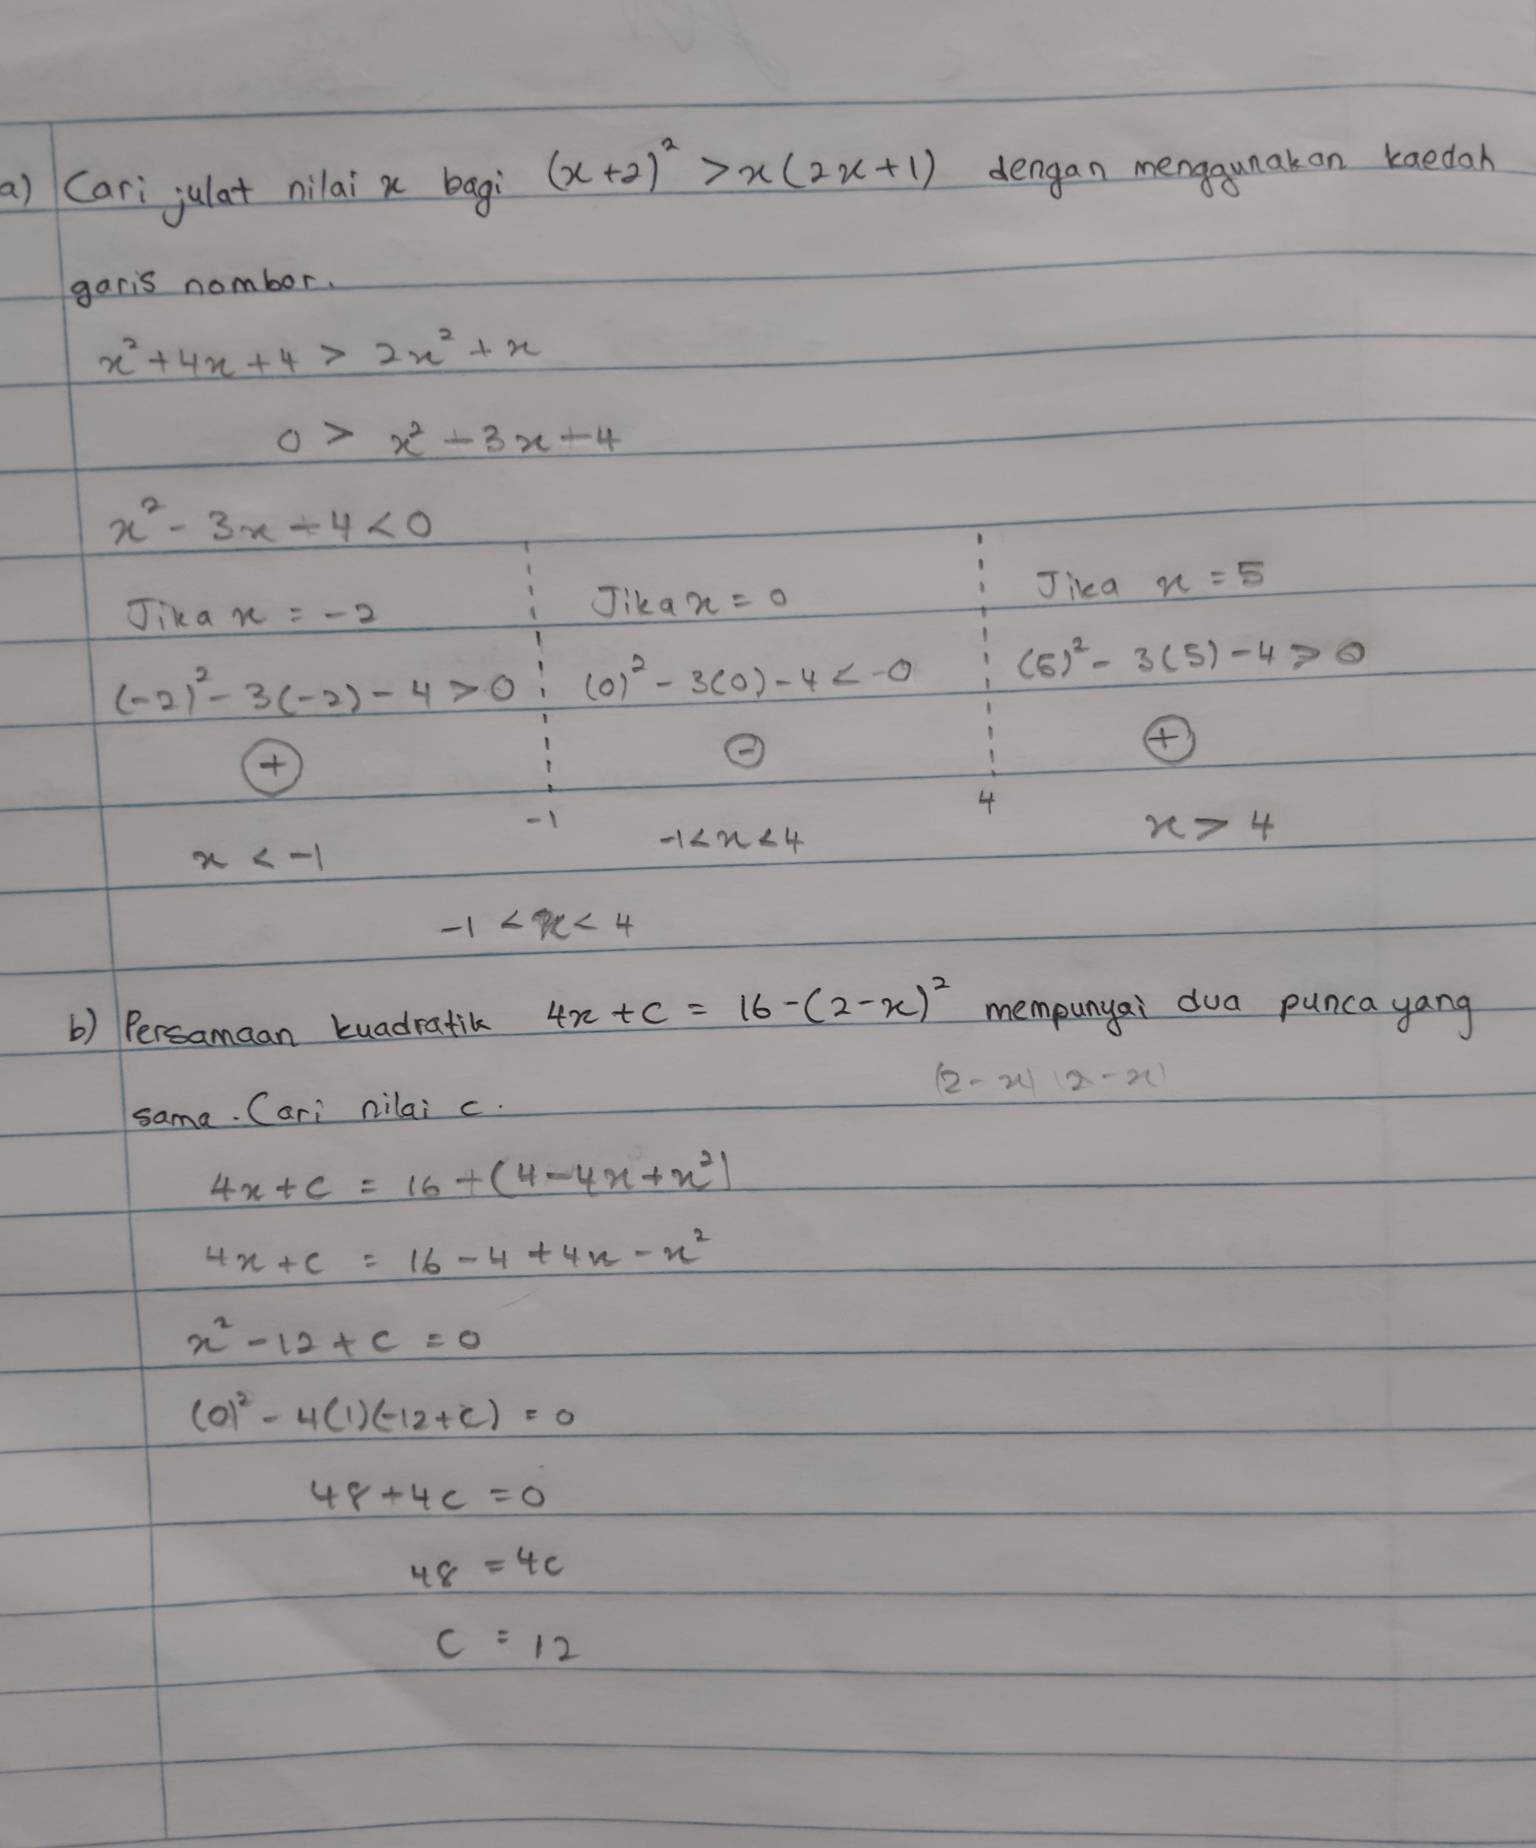 a) Cari julat nilai x bagi (x+2)² > x(2x+1) dengan menggunakan kaedah
garis nombor.
x² + 4x + 4 > 2x² + x
0 > x² - 3x - 4
x² - 3x - 4 < 0
Jika x = -2 Jika x = 0 Jika x = 5
(-2)² - 3(-2) - 4 > 0 (0)² - 3(0) - 4 < 0 (5)² - 3(5) - 4 > 0
+ - +
-1 4
x < -1 -1 < x < 4 x > 4
-1 < x < 4
b) Persamaan kuadratik 4x + c = 16 - (2-x)² mempunyai dua punca yang
(2-x)(2-x)
sama. Cari nilai c.
4x + c = 16 + (4 - 4x + x²)
4x + c = 16 - 4 + 4x - x²
x² - 12 + c = 0
(0)² - 4(1)(-12+c) = 0
48 + 4c = 0
48 = 4c
c = 12